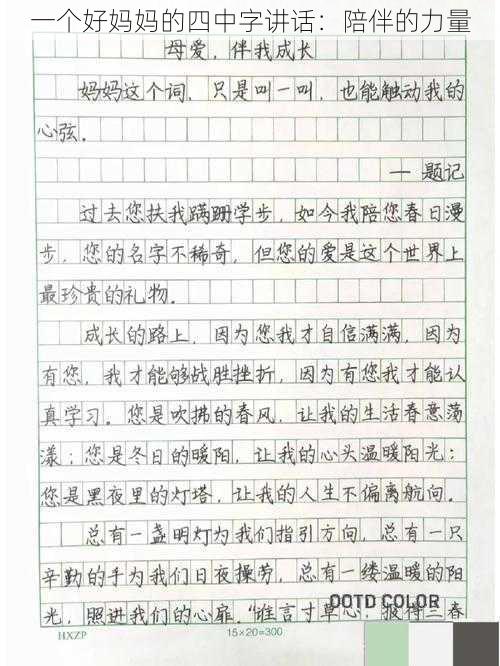 一个好妈妈的四中字讲话：陪伴的力量
母爱，伴我成长
妈妈这个词，只是叫一叫，也能触动我的
心弦。
— 题记
过去您扶我蹒跚学步，如今我陪您春日漫
步，您的名字不稀奇，但您的爱是这个世界上
最珍贵的礼物。
成长的路上，因为您我才自信满满，因为
有您，我才能够战胜挫折，因为有您我才能认
真学习。您是吹拂的春风，让我的生活春意荡
漾；您是冬日的暖阳，让我的心头温暖阳光；
您是黑夜里的灯塔，让我的人生不偏离航向。
总有一盏明灯为我们指引方向，总有一只
辛勤的手为我们日夜操劳，总有一缕温暖的阳
光，照进我们的心扉。“谁言寸草心，报得三春
OOTD COLOR
HXZP
15×20=300